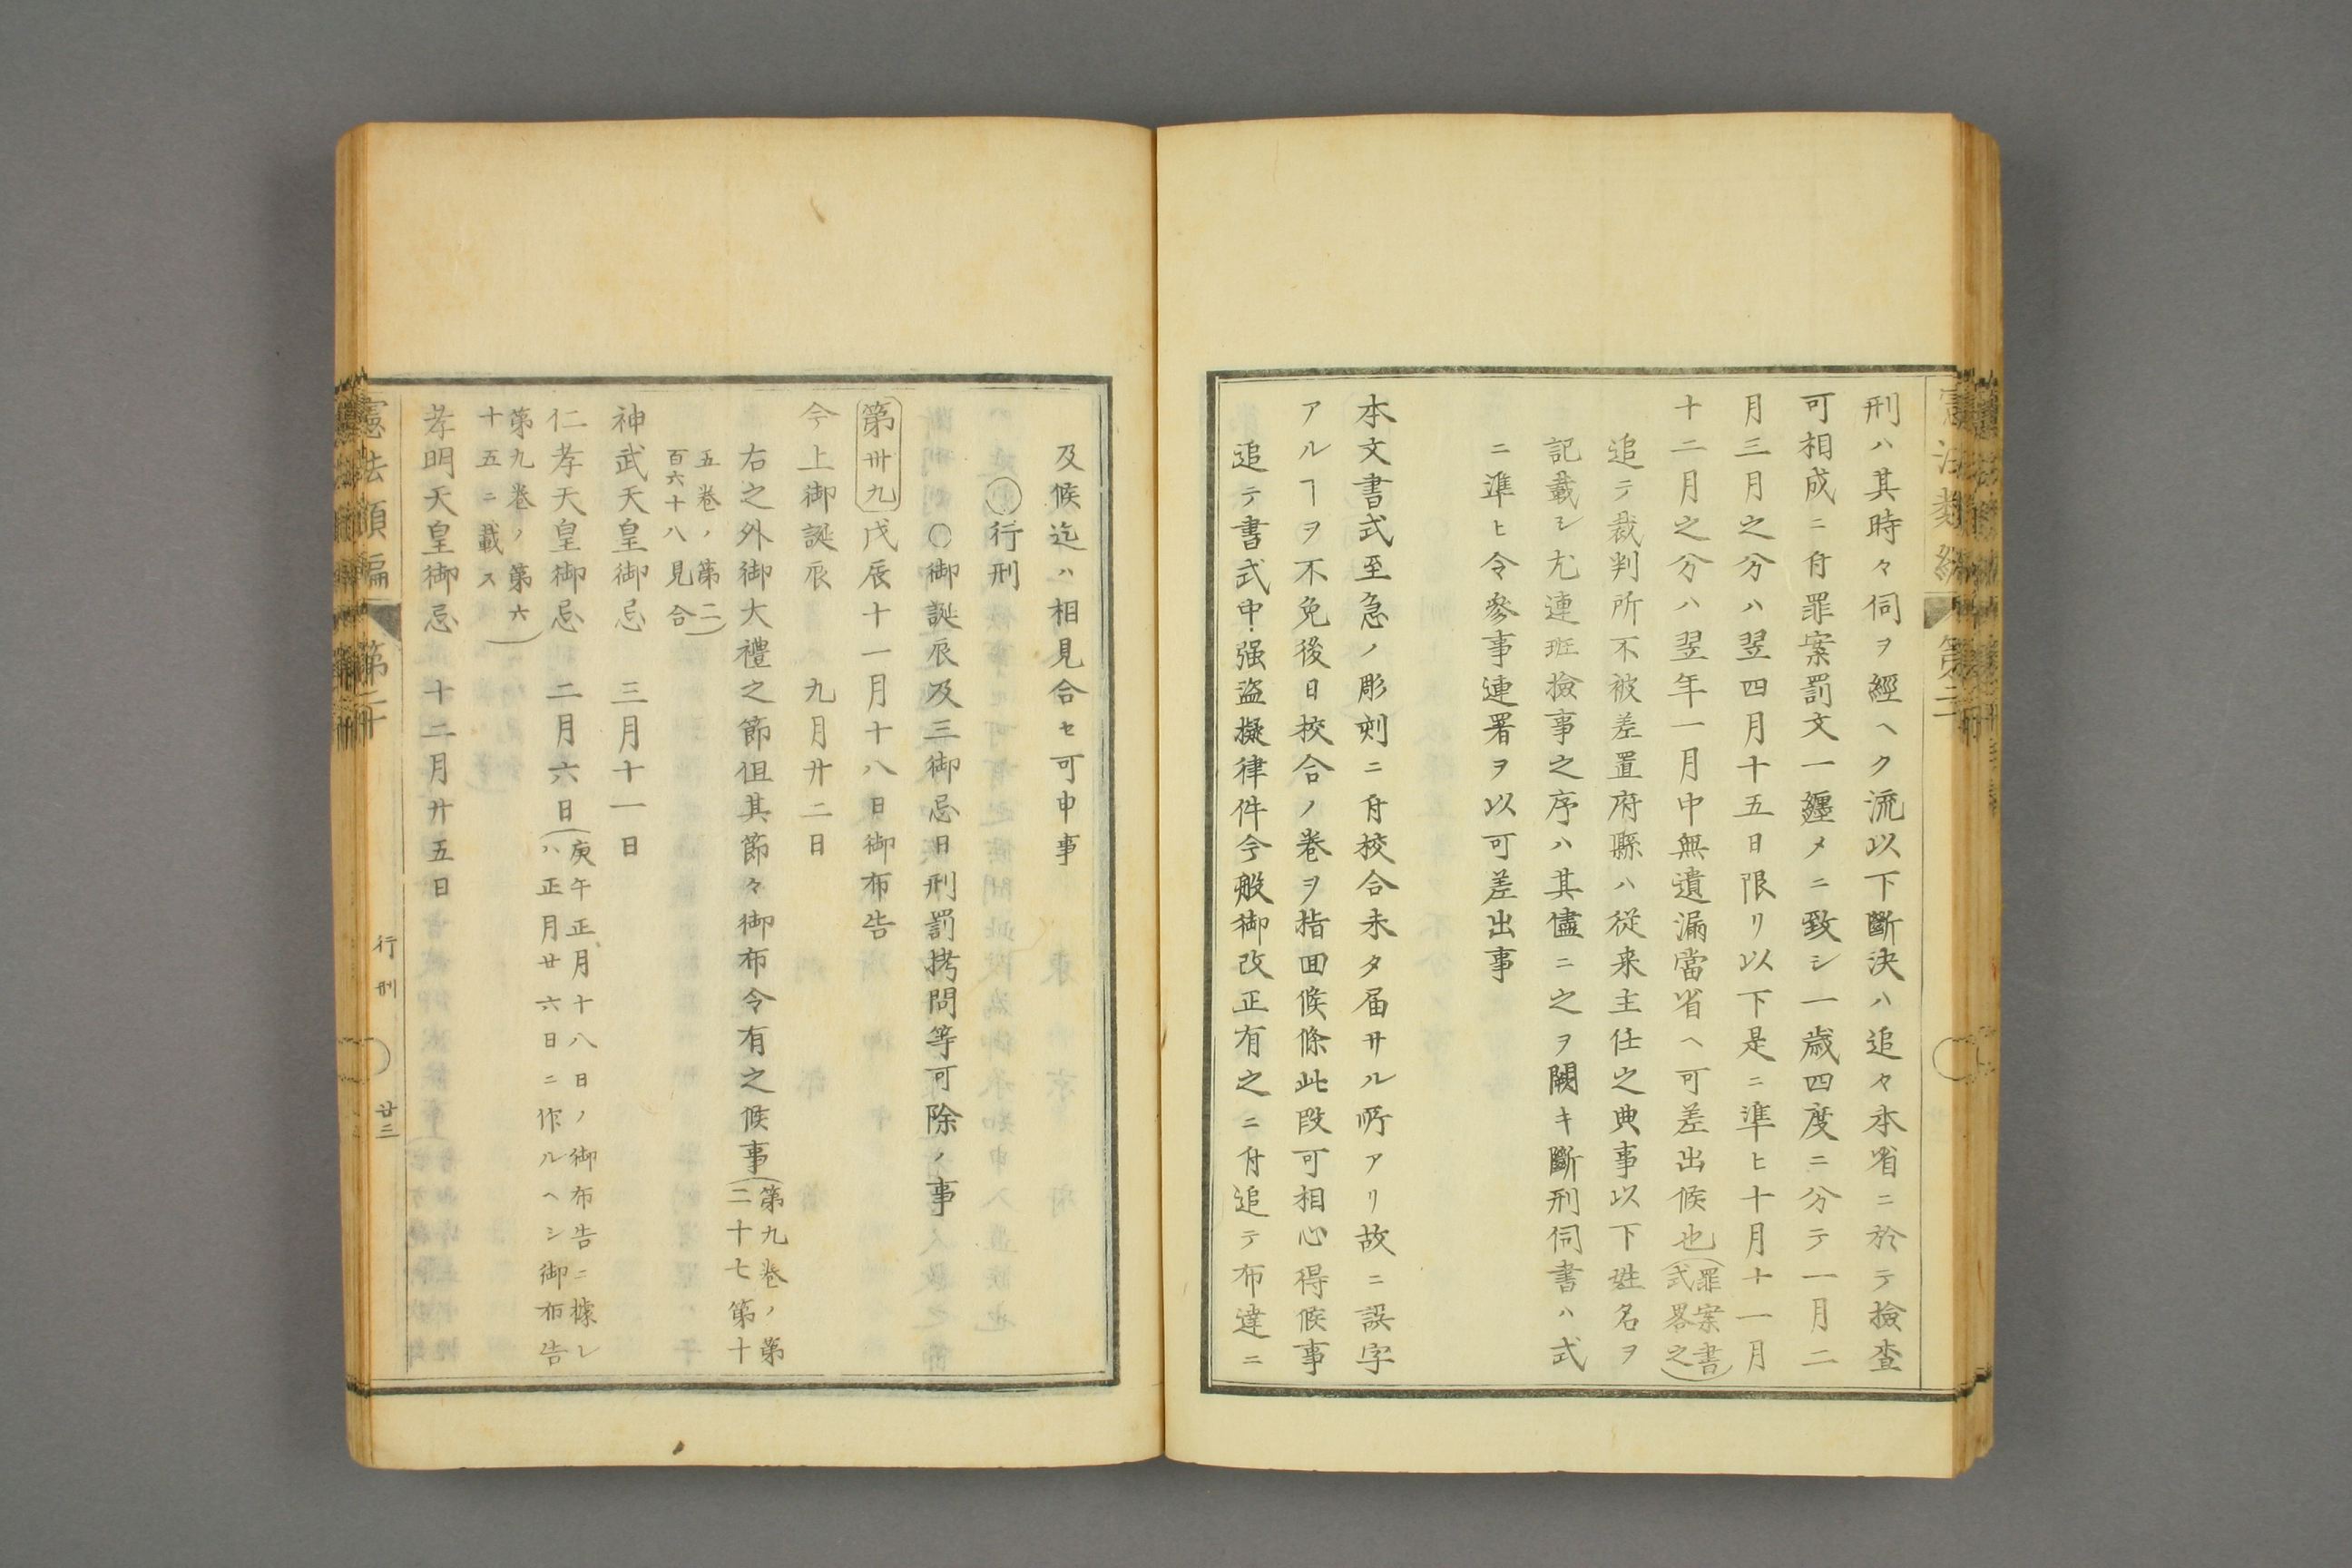 刑ハ其時々伺ヲ經ヘク流以下斷決ハ追々本省ニ於テ撿査
可相成ニ付罪案罰文一纏メニ致シ一歳四度ニ分テ一月二
月三月之分ハ翌四月十五日限リ以下是ニ準ヒ十月十一月
十二月之分ハ翌年一月中無遺漏當省ヘ可差出候也(罪案書
式畧之)
追テ裁判所不被差置府縣ハ從来主任之典事以下姓名ヲ
記載シ尤連班撿事之序ハ其儘ニ之ヲ闕キ斷刑伺書ハ式
ニ準ヒ令參事連署ヲ以可差出事
本文書式至急ノ彫刻ニ付校合未タ届サル所アリ故ニ誤字
アルヿヲ不免後日校合ノ巻ヲ指囬候條此段可相心得候事
追テ書式中强盗擬律件今般御改正有之ニ付追テ布達ニ
及候迄ハ相見合セ可申事
○行刑
○御誕辰及三御忌日刑罰拷問等可除ノ事
第卅九 戊辰十一月十八日御布告
今上御誕辰 九月廿二日
右之外御大禮之節伹其節々御布令有之候事(第九巻ノ第
二十七第十
五巻ノ第二
百六十八見合)
神武天皇御忌 三月十一日
仁孝天皇御忌 二月六日(庚午正月十八日ノ御布告ニ據レ
ハ正月廿六日ニ作ルヘシ御布告
第九巻ノ第六
十五ニ載ス)
孝明天皇御忌 十二月廿五日
憲法類編 第二十
行刑
廿三